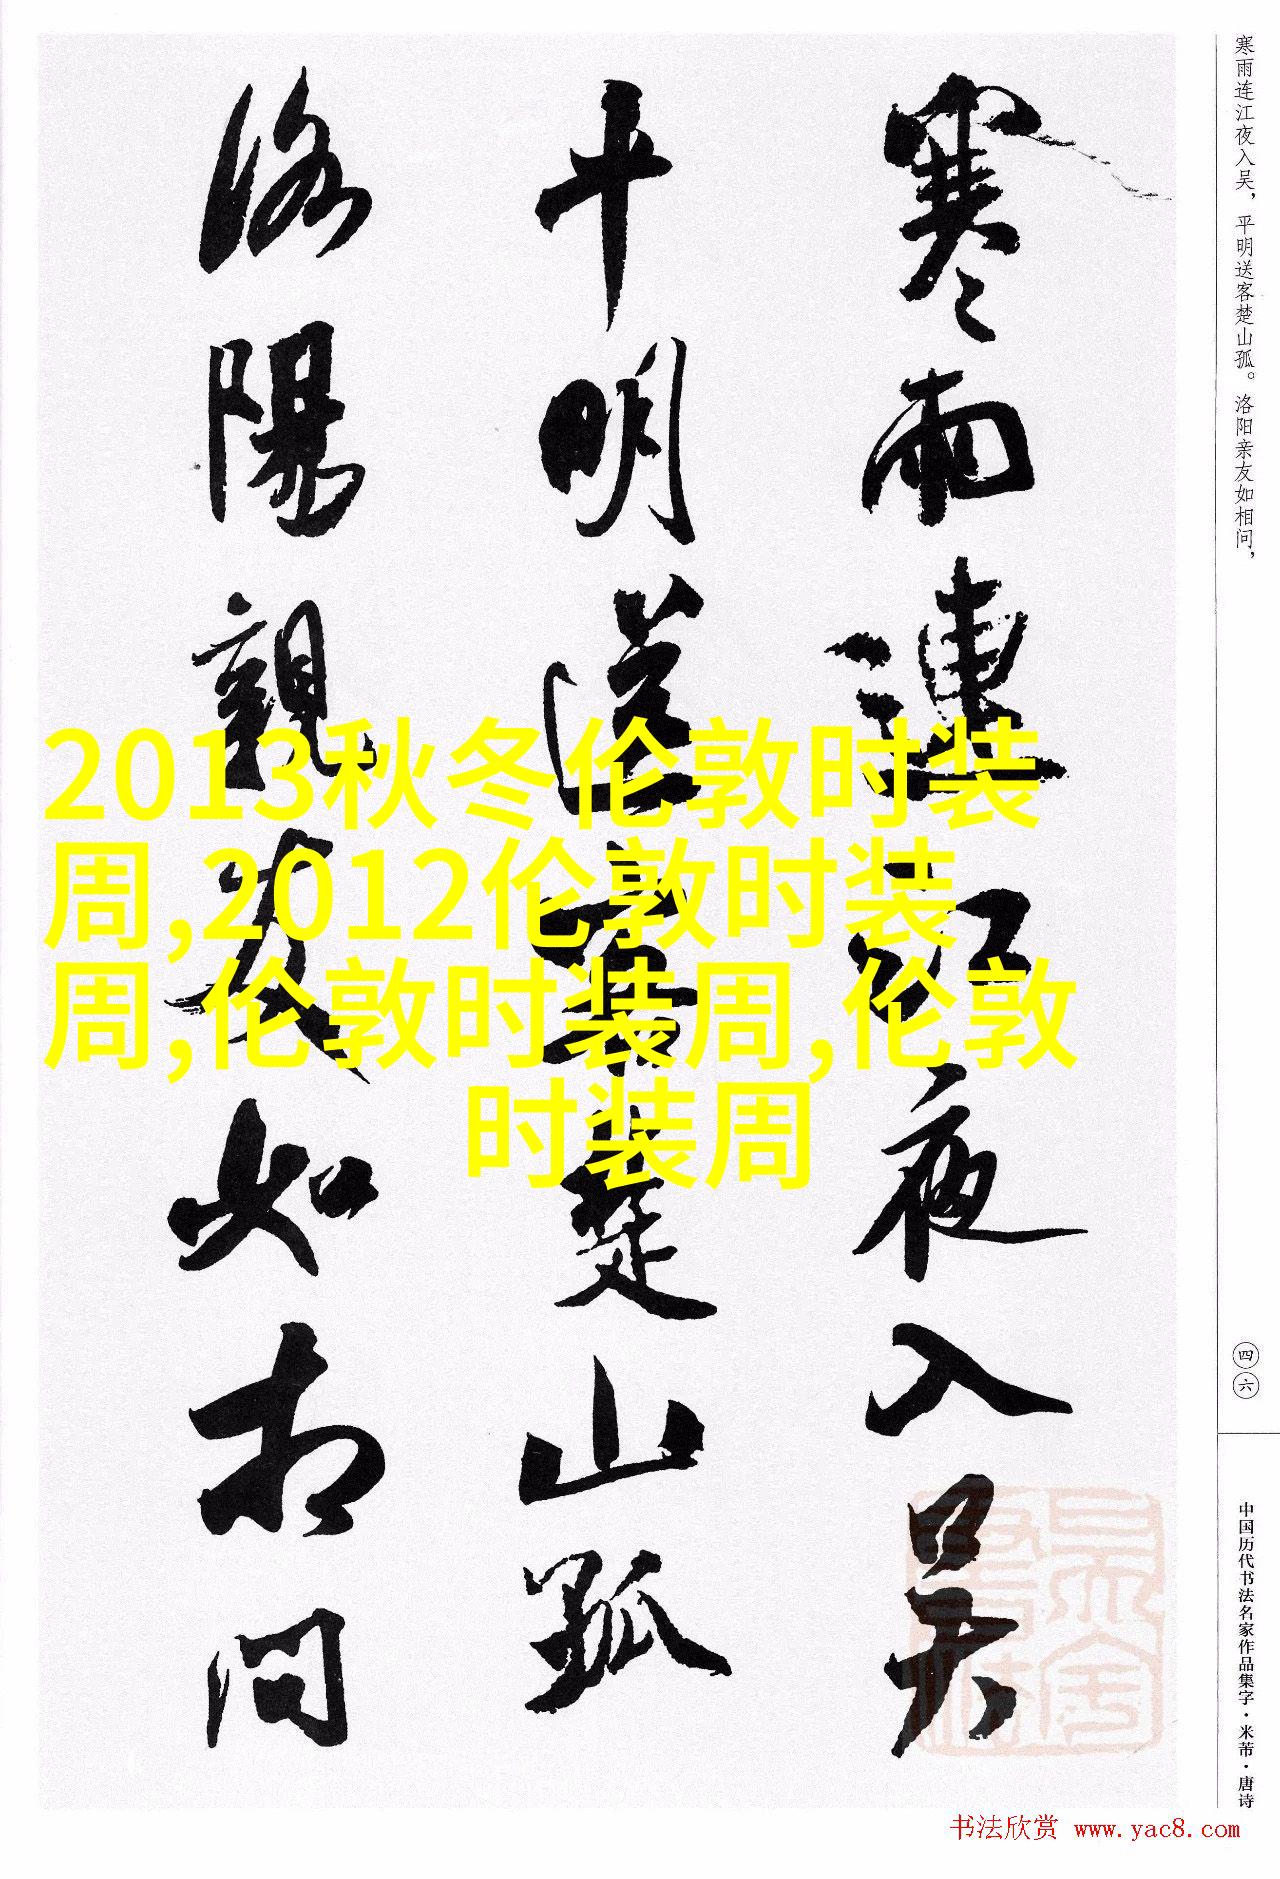 寒雨連江夜入吴
十明送客楚山孤
洛陽親友如相問
寒雨连江夜入吴，平明送客楚山孤。洛阳亲友如相问，
四六
中国历代书法名家作品集字·米芾·唐诗
2013秋冬伦敦时装
周,2012伦敦时装
周,伦敦时装周,伦敦
时装周
书法欣赏 www.yac8.com